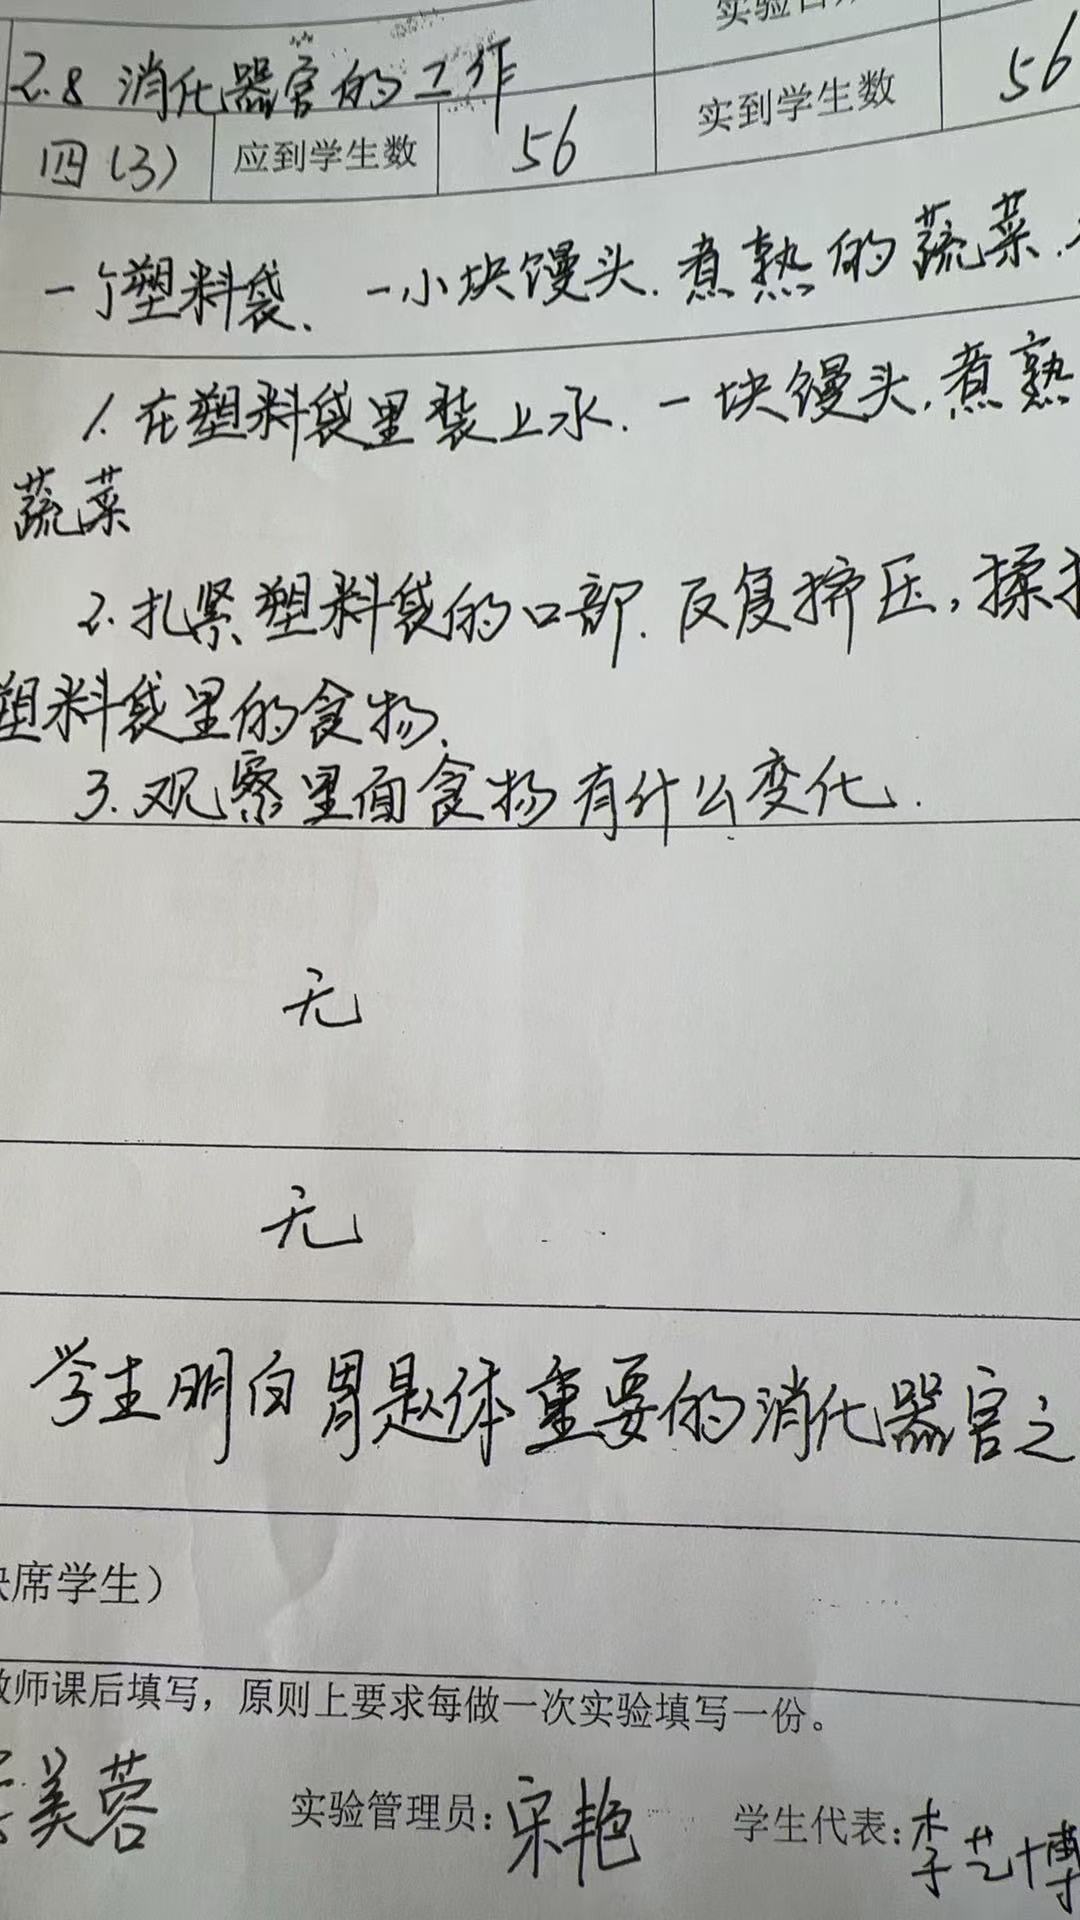 实验日
2.8 消化器官的工作
四(3) 应到学生数 56 实到学生数 56
一个塑料袋、一小块馒头、煮熟的蔬菜、
1. 在塑料袋里装上水、一块馒头、煮熟
蔬菜
2. 扎紧塑料袋的口部、反复挤压,揉
塑料袋里的食物、
3. 观察里面食物有什么变化.
无
无
学生明白胃是体重要的消化器官之
席学生)
师课后填写,原则上要求每做一次实验填写一份。
美蓉 实验管理员:宋艳 学生代表:李艺博